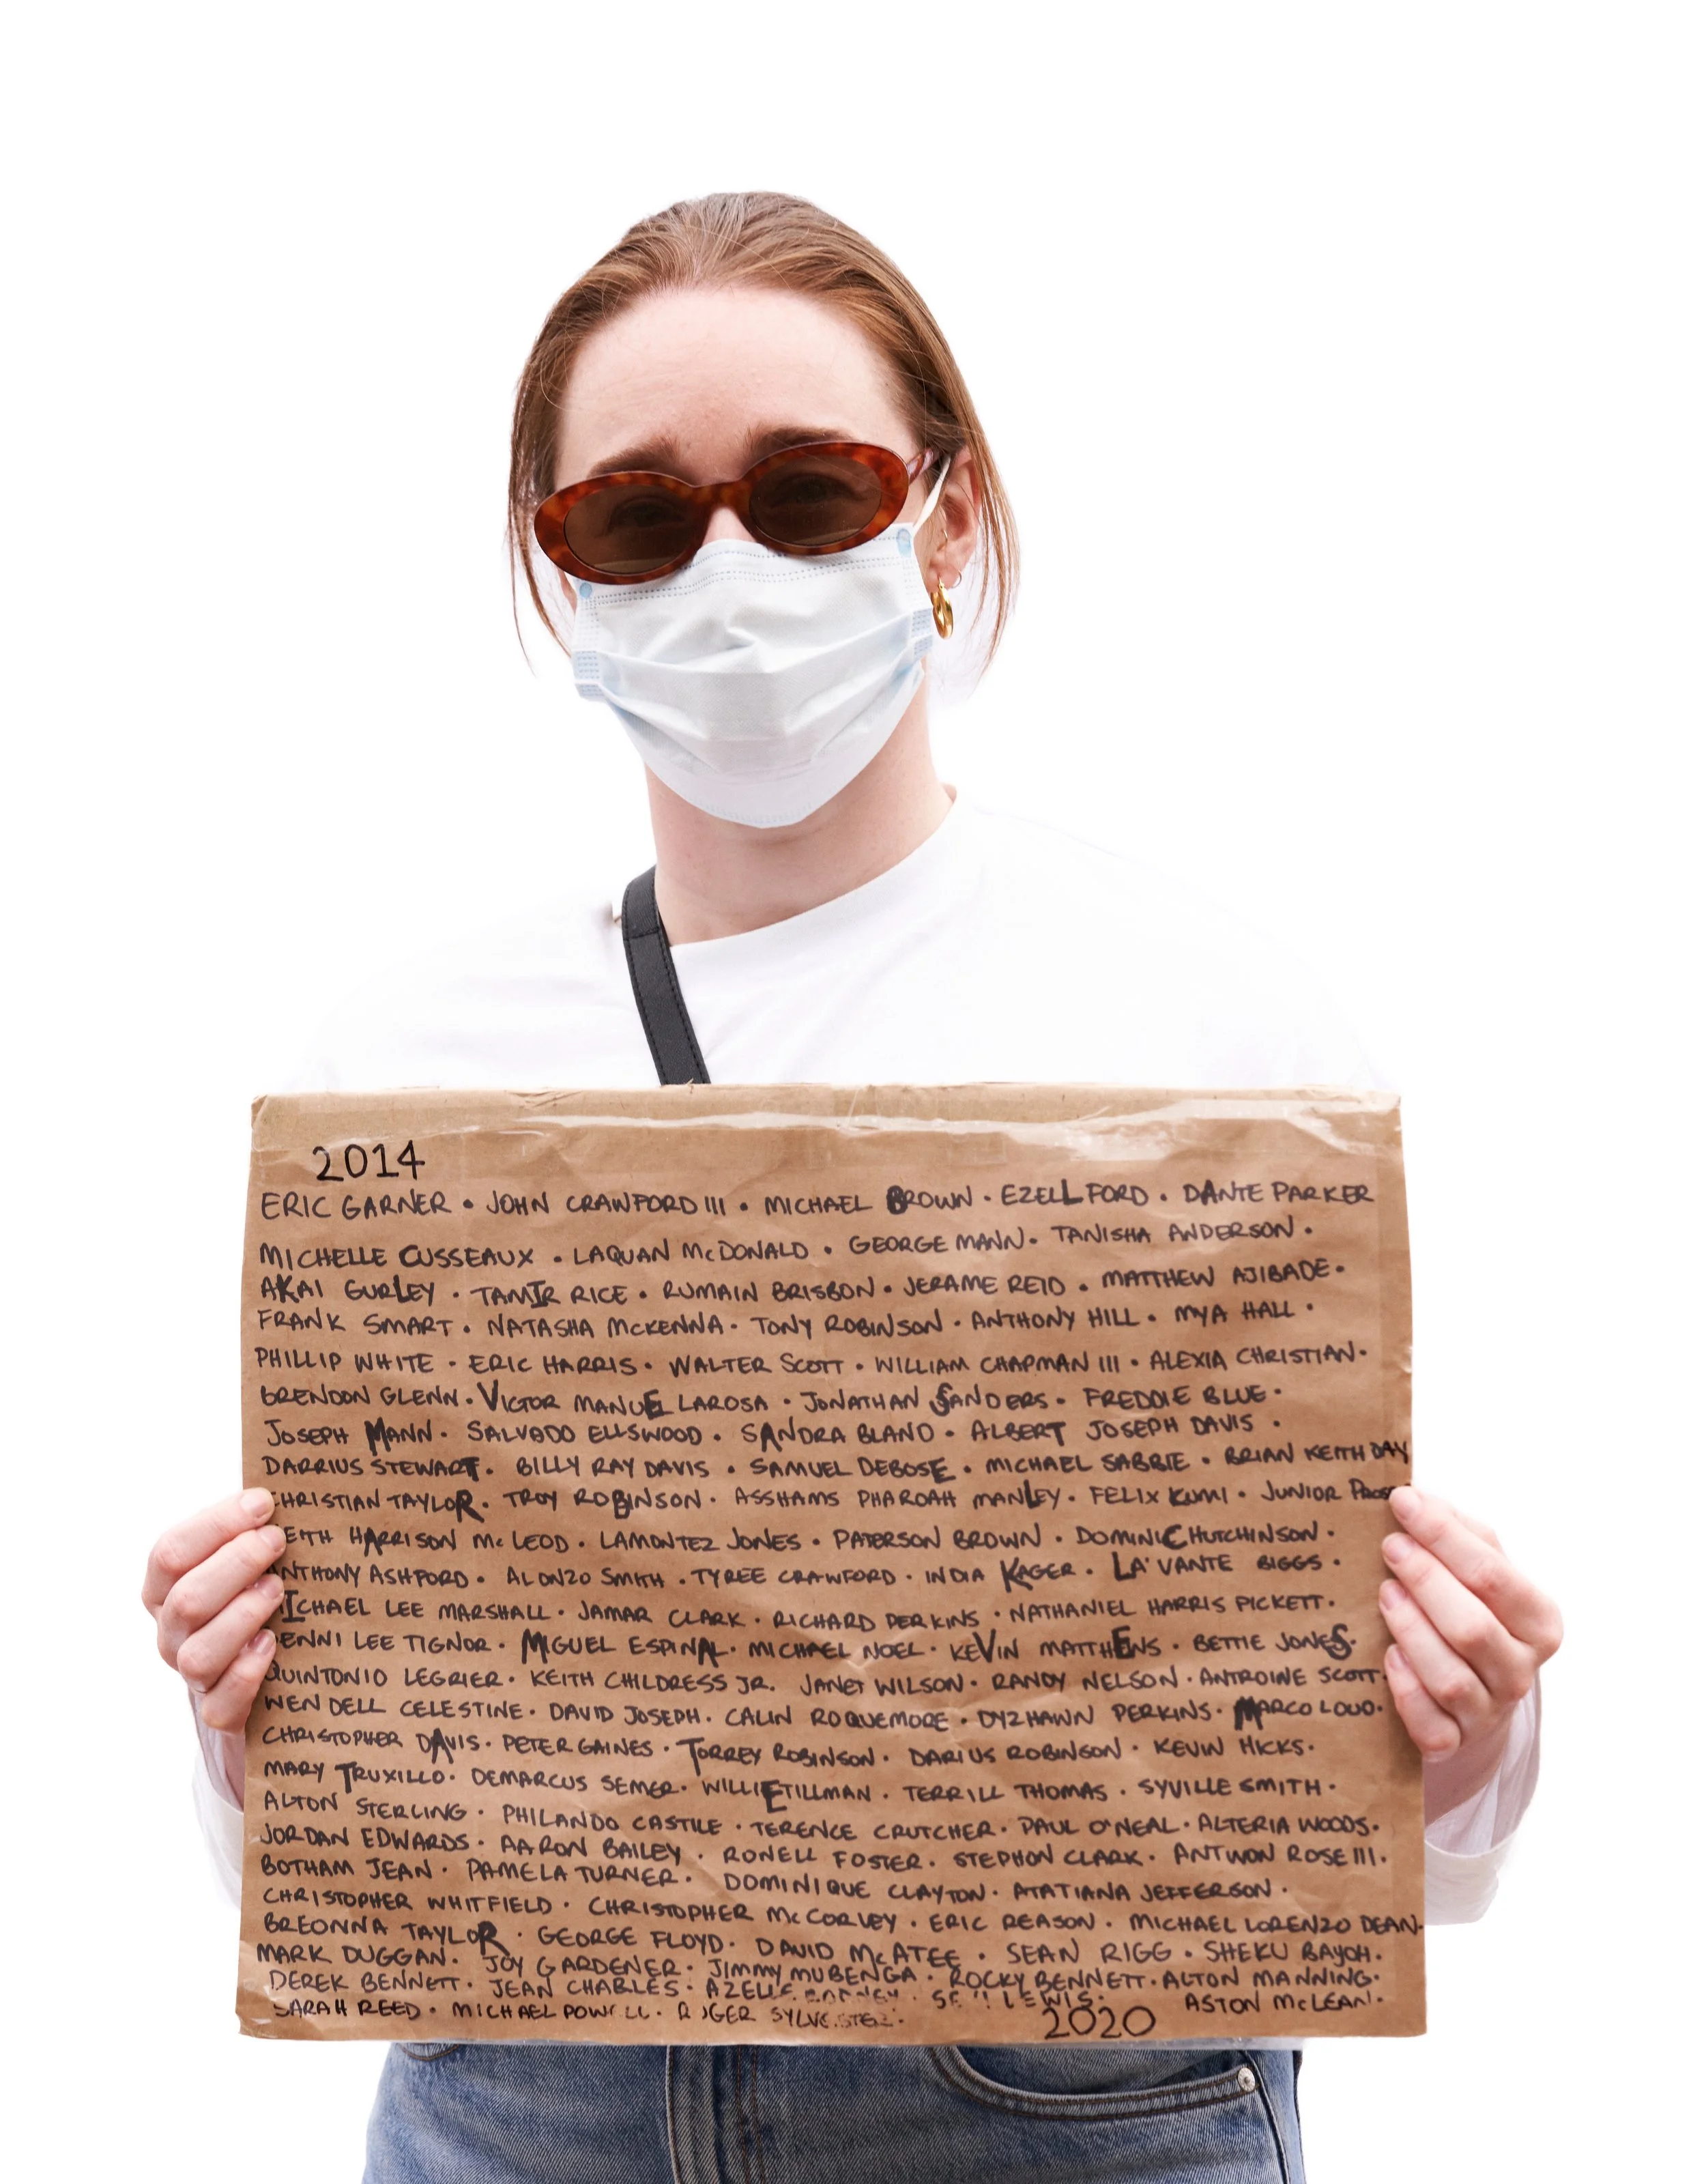 2014
ERIC GARNER • JOHN CRAWFORD III • MICHAEL BROWN • EZELL FORD • DANTE PARKER
MICHELLE CUSSEAUX • LAQUAN McDONALD • GEORGE MANN • TANISHA ANDERSON •
AKAI GURLEY • TAMIR RICE • RUMAIN BRISBON • JERAME REID • MATTHEW AJIBADE •
FRANK SMART • NATASHA McKENNA • TONY ROBINSON • ANTHONY HILL • MYA HALL •
PHILLIP WHITE • ERIC HARRIS • WALTER SCOTT • WILLIAM CHAPMAN III • ALEXIA CHRISTIAN •
BRENDON GLENN • VICTOR MANUEL LAROSA • JONATHAN SANDERS • FREDDIE BLUE •
JOSEPH MANN • SALVADO ELLSWOOD • SANDRA BLAND • ALBERT JOSEPH DAVIS •
DARRIUS STEWART • BILLY RAY DAVIS • SAMUEL DEBOSE • MICHAEL SABBIE • BRIAN KEITH DAY
CHRISTIAN TAYLOR • TROY ROBINSON • ASSHAMS PHAROAH MANLEY • FELIX KUMI • JUNIOR
KEITH HARRISON McLEOD • LAMONTEZ JONES • PATERSON BROWN • DOMINIC HUTCHINSON •
ANTHONY ASHFORD • ALONZO SMITH • TYREE CRAWFORD • INDIA KAGER • LA'VANTE BIGGS •
MICHAEL LEE MARSHALL • JAMAR CLARK • RICHARD PERKINS • NATHANIEL HARRIS PICKETT •
BENNI LEE TIGNOR • MIGUEL ESPINAL • MICHAEL NOEL • KEVIN MATTHEWS • BETTIE JONES •
QUINTONIO LEGRIER • KEITH CHILDRESS JR. JANET WILSON • RANDY NELSON • ANTROINE SCOTT •
WENDELL CELESTINE • DAVID JOSEPH • CALIN ROQUEMORE • DYZHAWN PERKINS • MARCO LOUD •
CHRISTOPHER DAVIS • PETER GAINES • TORREY ROBINSON • DARIUS ROBINSON • KEVIN HICKS •
MARY TRUXILLO • DEMARCUS SEMER • WILLIE TILLMAN • TERRILL THOMAS • SYVILLE SMITH •
ALTON STERLING • PHILANDO CASTILE • TERENCE CRUTCHER • PAUL O'NEAL • ALTERIA WOODS •
JORDAN EDWARDS • AARON BAILEY • RONELL FOSTER • STEPHON CLARK • ANTWON ROSE III •
BOTHAM JEAN • PAMELA TURNER • DOMINIQUE CLAYTON • ATATIANA JEFFERSON •
CHRISTOPHER WHITFIELD • CHRISTOPHER McCORVEY • ERIC REASON • MICHAEL LORENZO DEAN •
BREONNA TAYLOR • GEORGE FLOYD • DAVID McATEE • SEAN RIGG • SHEKU BAYOH •
MARK DUGGAN • JOY GARDENER • JIMMY MUBENGA • ROCKY BENNETT • ALTON MANNING •
DEREK BENNETT • JEAN CHARLES • LEWIS • ASTON McLEAN •
SARAH REED • MICHAEL POWELL • ROGER SYLVESTER • 2020